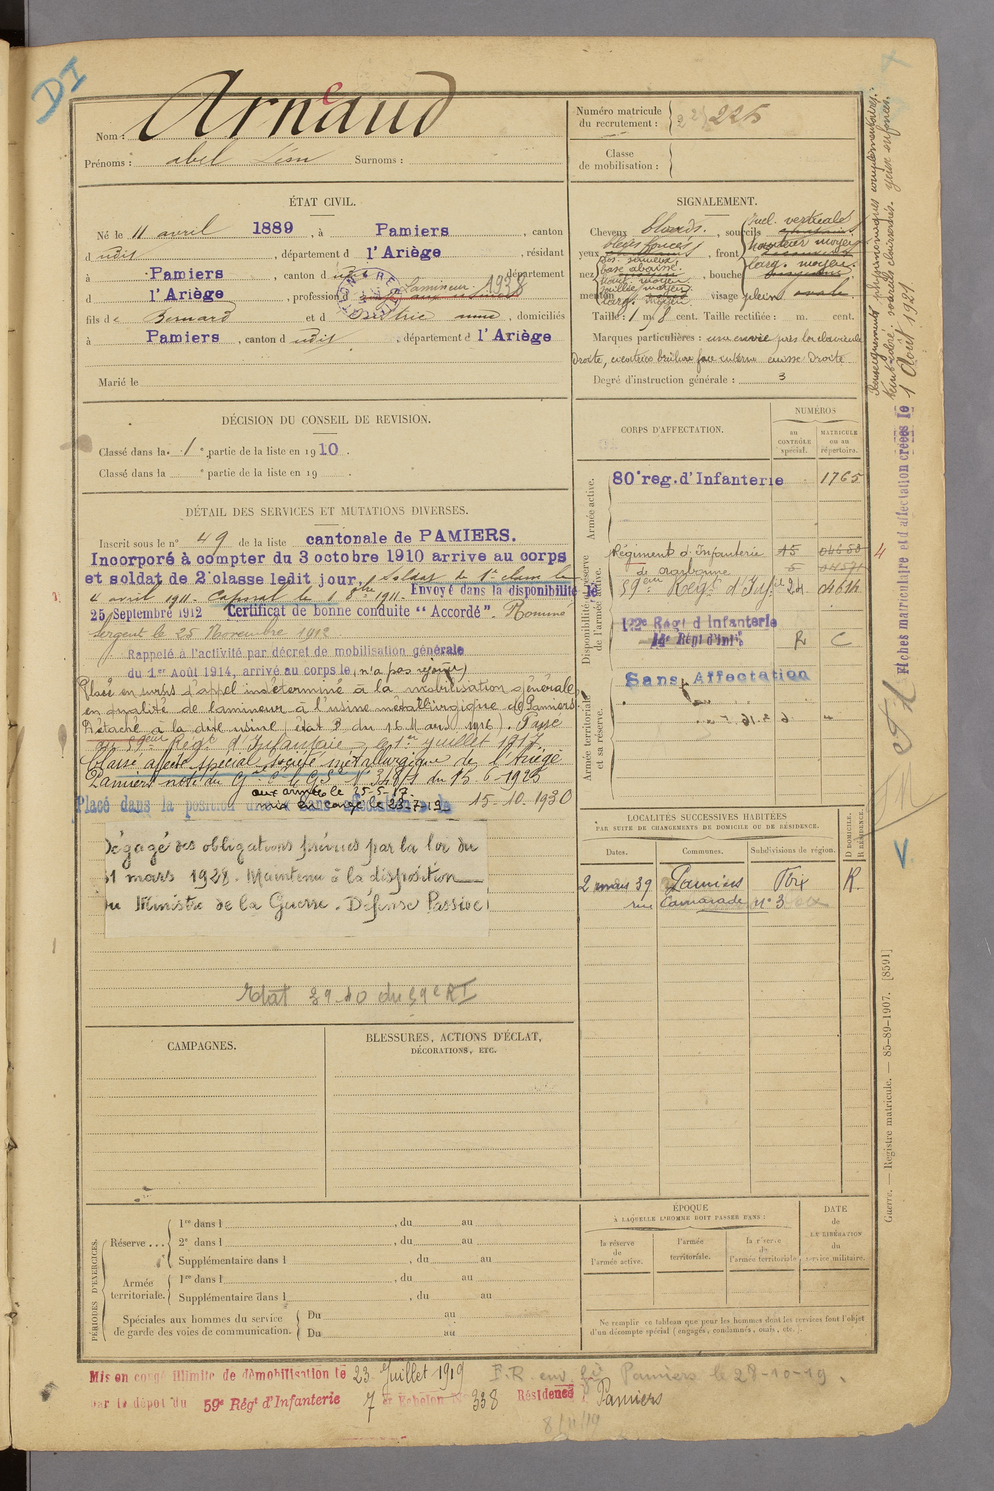 DI
Nom : Arneaud
Prénoms : abel Léon Surnoms :
Numéro matricule
du recrutement : 225
Classe
de mobilisation :
ÉTAT CIVIL.
Né le 11 avril 1889, à Pamiers, canton
dudit, département d l'Ariège, résidant
à Pamiers, canton d udit, département
d l'Ariège, profession d Lamineur 1938
fils de Bernard et d anne, domiciliés
à Pamiers, canton d udit, département d l'Ariège
Marié le
SIGNALEMENT.
Cheveux blonds., sourcils
Incl. verticale
yeux bleus foncés, front hauteur moyen
larg. moyen
nez base abaissé. haut. moyen saillie moyen larg. moyen, bouche
menton, visage plein ovale
Taille : 1 m. 8 cent. Taille rectifiée : m. cent.
Marques particulières : une envie près la clavicule
Droite, cicatrice brûlure face interne cuisse Droite
Degré d'instruction générale : 3
Renseignements physionomiques complémentaires:
1 Août 1921
Fiches matriculaire et d'affectation créées le
DÉCISION DU CONSEIL DE REVISION.
Classé dans la 1e partie de la liste en 1910.
Classé dans la e partie de la liste en 19 .
CORPS D'AFFECTATION.
NUMÉROS
au
CONTRÔLE
spécial.
MATRICULE
ou au
répertoire.
Armée active.
80e reg. d'Infanterie 1765
Disponibilité et réserve
de l'armée active.
Régiment d'Infanterie 15
de Narbonne 5
59ème Régt d'Infie 24 04614
122e Régt d Infanterie
14e Régt d'Infie R C
Armée territoriale
et sa réserve.
Sans Affectation
DÉTAIL DES SERVICES ET MUTATIONS DIVERSES.
Inscrit sous le n° 49 de la liste cantonale de PAMIERS.
Incorporé à compter du 3 octobre 1910 arrive au corps
et soldat de 2e classe ledit jour, Soldat de 1e classe le
4 avril 1911. Caporal le 8 8bre 1911. Envoyé dans la disponibilité le
25 Septembre 1912 Certificat de bonne conduite "Accordé". Nommé
sergent le 25 Novembre 1912.
Rappelé à l'activité par décret de mobilisation générale
du 1er Août 1914, arrivé au corps le (n'a pas rejoint)
Placé en sursis d'appel indéterminé à la mobilisation générale
en qualité de lamineur à l'usine métallurgique de Pamiers.
Détaché à la dite usine (état B du 16 Mars 1916). Passé
au 59ème Régt d'Infanterie le 1er juillet 1917
Classé affecté spécial société métallurgique de l'Ariège
Pamiers note du Gal C le GSE N° 348/1 du 15.6-1925
aux armées le 25-5-17.
mis en congé le 23-7-19
Placé dans la position dit Sans affectation le 15.10.1930
Dégagé des obligations prévues par la loi du
31 mars 1928. Maintenu à la disposition
du Ministre de la Guerre. Défense Passive
Etat 39.40 du 59e RI
LOCALITÉS SUCCESSIVES HABITÉES
PAR SUITE DE CHANGEMENTS DE DOMICILE OU DE RÉSIDENCE.
Dates. Communes. Subdivisions de région. D DOMICILE. R RÉSIDENCE.
2 mars 39 Pamiers Foix R.
rue Camarade n° 3
CAMPAGNES.
BLESSURES, ACTIONS D'ÉCLAT,
DÉCORATIONS, ETC.
PÉRIODES D'EXERCICES.
Réserve...
1re dans l , du au
2e dans l , du au
Supplémentaire dans l , du au
Armée
territoriale.
1re dans l , du au
Supplémentaire dans l , du au
Spéciales aux hommes du service
de garde des voies de communication.
Du au
Du au
ÉPOQUE
À LAQUELLE L'HOMME DOIT PASSER DANS :
la réserve
de
l'armée active.
l'armée
territoriale.
la réserve
de
l'armée territoriale.
DATE
de
LA LIBÉRATION
du
service militaire.
Ne remplir ce tableau que pour les hommes dont les services font l'objet
d'un décompte spécial (engagés, condamnés, omis, etc.).
Guerre. — Registre matricule. — 85-89-1907. [8591]
Mis en congé illimité de démobilisation le 23 Juillet 1919
par le dépôt du 59e Régt d'Infanterie 7 Echelon N° 338 Résidence Pamiers
F.R. env. Gie Pamiers le 28-10-19.
8/11/19